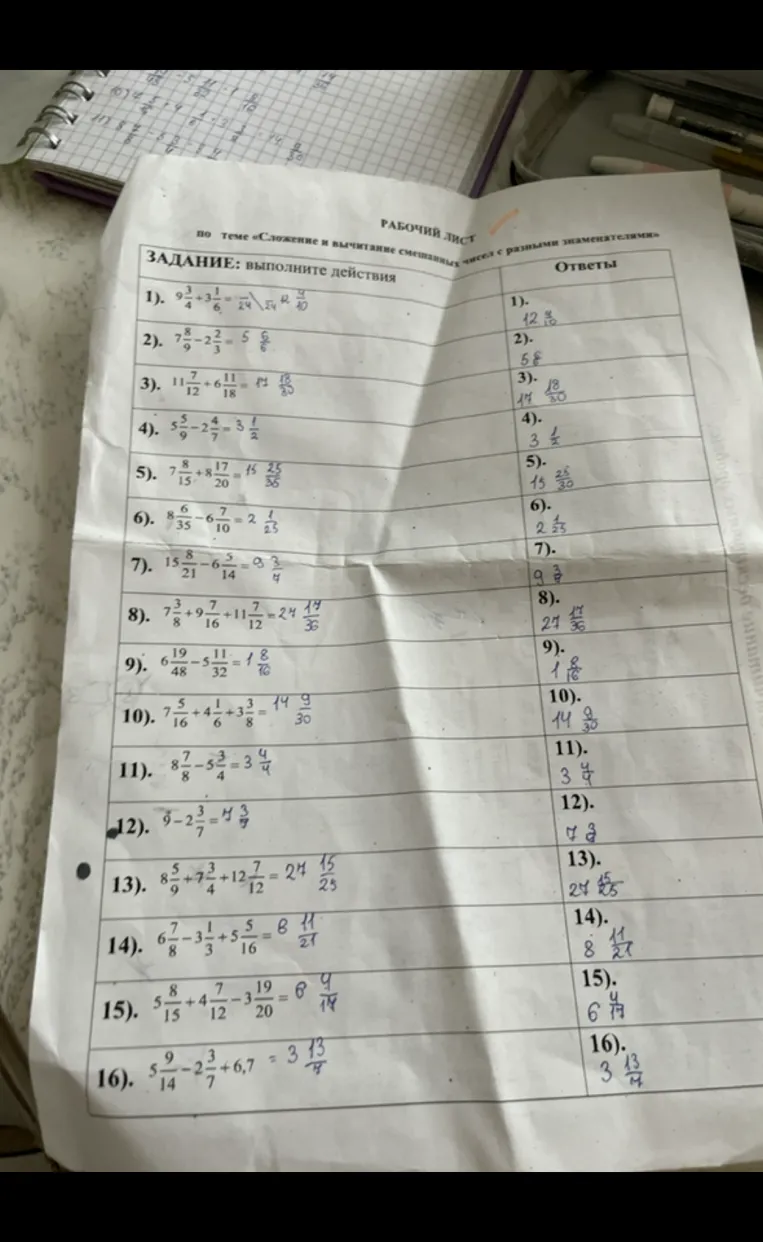 РАБОЧИЙ ЛИСТ
по теме «Сложение и вычитание смешанных чисел с разными знаменателями»
ЗАДАНИЕ: выполните действия
Ответы
1). 9 3/4 + 3 1/6 =
1).
12
2). 7 8/9 - 2 2/3 = 5 6/6
2).
5
3). 11 7/12 + 6 11/18 = 17 18/30
3).
17 18/30
4). 5 5/9 - 2 4/7 = 3 1/2
4).
3 1/2
5). 7 8/15 + 8 17/20 = 15 25/35
5).
15 25/30
6). 8 6/35 - 6 7/10 = 2 1/25
6).
2 1/25
7). 15 8/21 - 6 5/14 = 9 3/7
7).
9 3/7
8). 7 3/8 + 9 7/16 + 11 7/12 = 27 17/36
8).
27 17/36
9). 6 19/48 - 5 11/32 = 1 8/16
9).
1 8/16
10). 7 5/16 + 4 1/6 + 3 3/8 = 14 9/30
10).
14 9/30
11). 8 7/8 - 5 3/4 = 3 4/4
11).
3 4/4
12). 9 - 2 3/7 = 7 3/7
12).
7 3/7
13). 8 5/9 + 7 3/4 + 12 7/12 = 27 15/25
13).
27 15/25
14). 6 7/8 - 3 1/3 + 5 5/16 = 8 11/21
14).
8 11/21
15). 5 8/15 + 4 7/12 - 3 19/20 = 6 4/17
15).
6 4/17
16). 5 9/14 - 2 3/7 + 6,7 = 3 13/7
16).
3 13/7